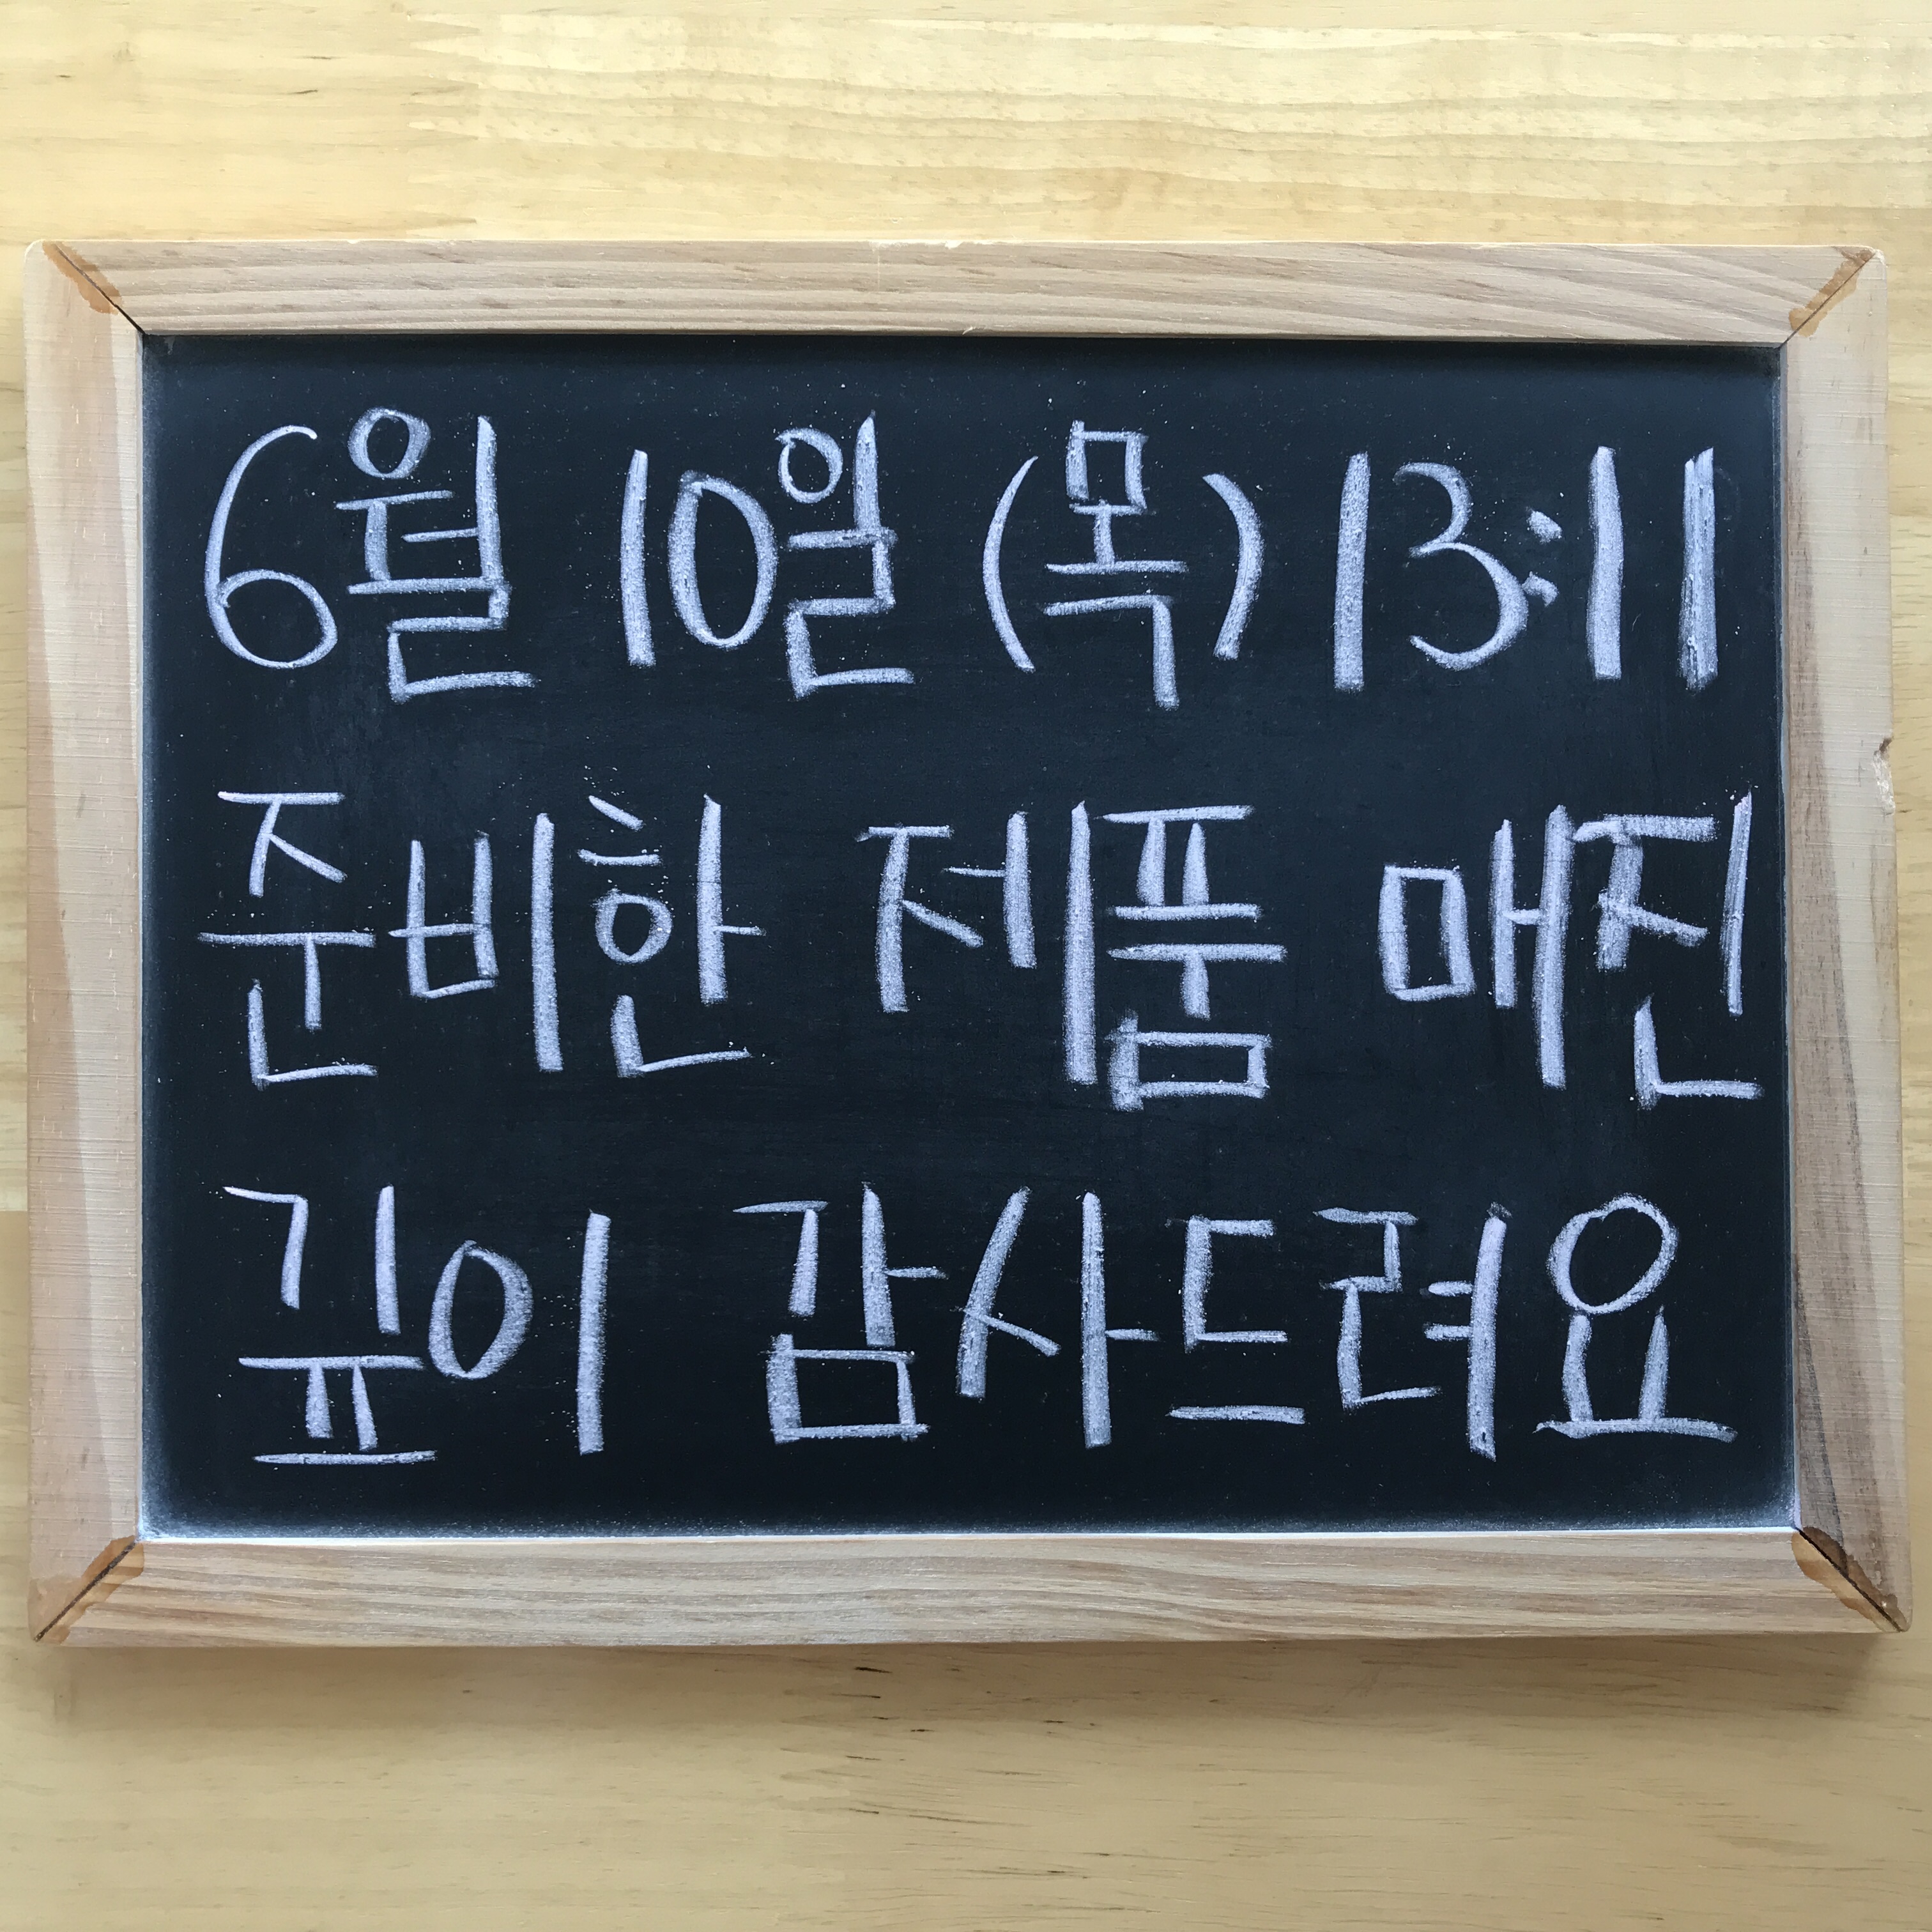 6월 10일 (목) 13:11
준비한 제품 매진
깊이 감사드려요